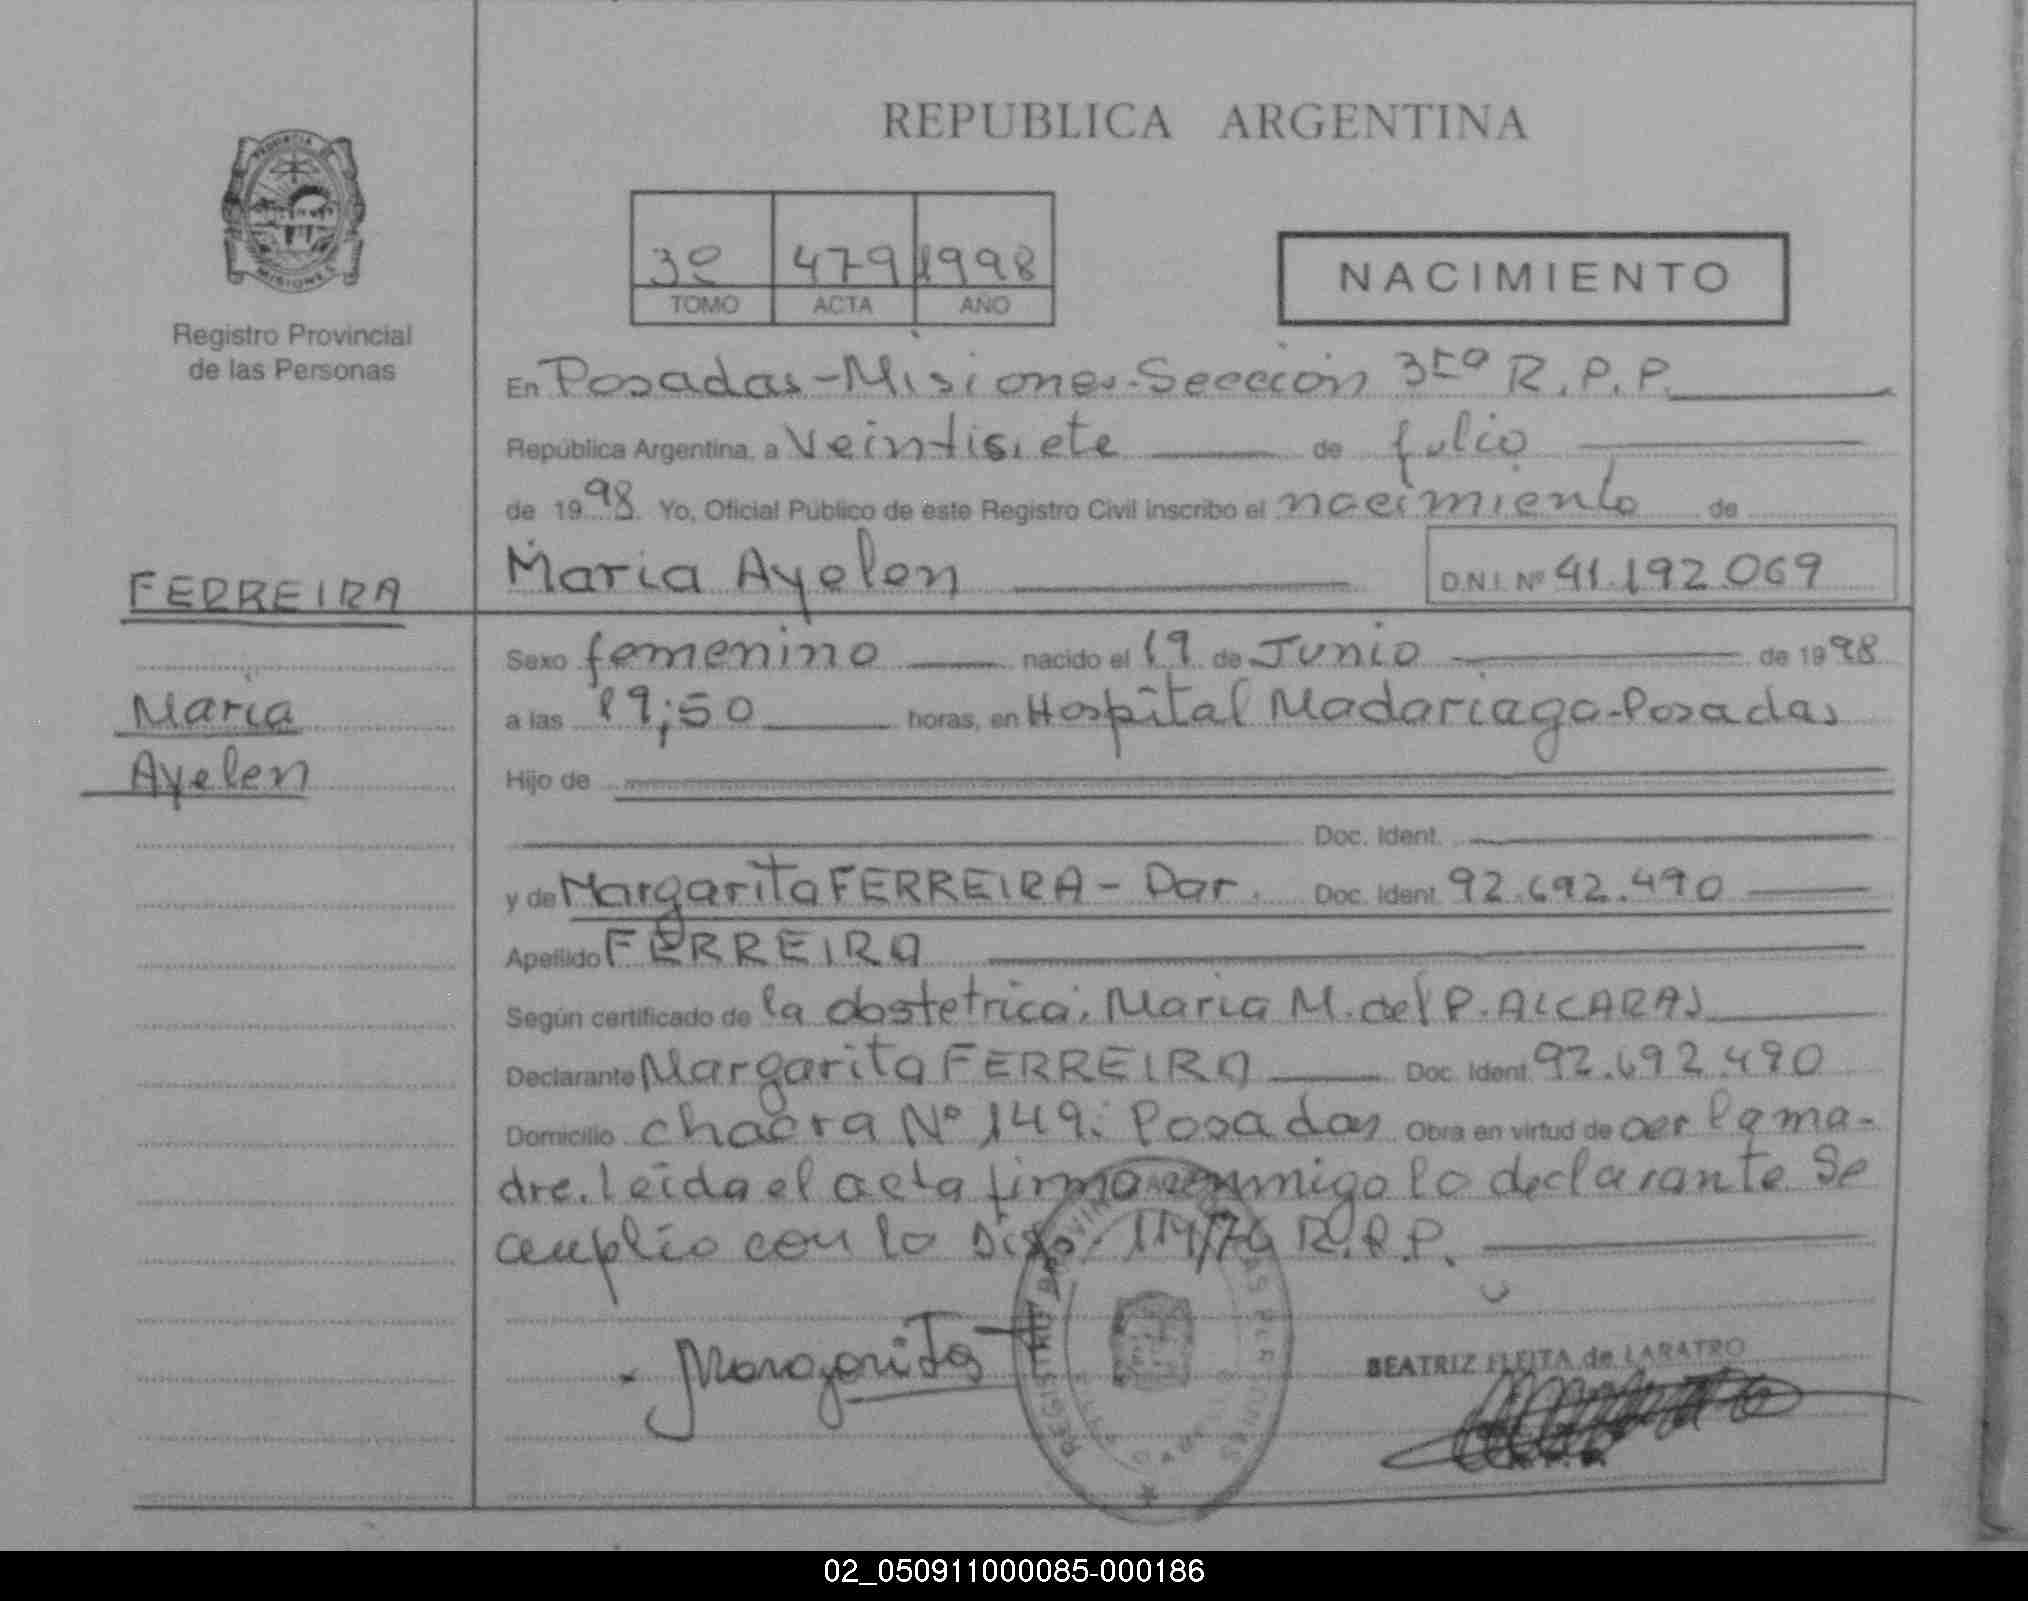 REPUBLICA ARGENTINA
PROVINCIA DE MISIONES
Registro Provincial
de las Personas
3º 479 1998
TOMO ACTA AÑO
NACIMIENTO
En Posadas-Misiones-Sección 3ra R.P.P.
República Argentina, a Veintisiete de julio
de 1998 Yo, Oficial Público de este Registro Civil inscribo el nacimiento de
Maria Ayelen D.N.I. Nº 41.192.069
FERREIRA
Maria
Ayelen
Sexo femenino nacido el 19 de Junio de 1998
a las 19;50 horas, en Hospital Madariaga-Posadas
Hijo de
Doc. Ident.
y de Margarita FERREIRA - Par. Doc. Ident. 92.692.490
Apellido FERREIRA
Según certificado de la obstetrica: Maria M. del P. ALCARAS
Declarante Margarita FERREIRA Doc. Ident. 92.692.490
Domicilio chacra Nº 149: Posadas Obra en virtud de ser la ma-
dre. Leida el acta firma conmigo la declarante Se
cumplio con la Disp. 114/76 R.P.P.
Margarita
REGISTRO PROVINCIAL DE LAS PERSONAS
BEATRIZ FLEITA de LARATRO
02_050911000085-000186